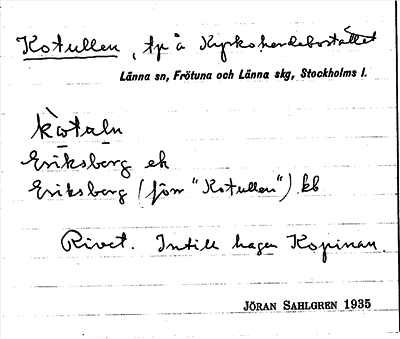 Kotullen, tp å Kyrkoherdebostället
Länna sn, Frötuna och Länna skg, Stockholms l.
kòtaln
Eriksberg ek
Eriksberg (förr "Kotullen") kb
Rivet. Intill hagen Kopinan.
JÖRAN SAHLGREN 1935